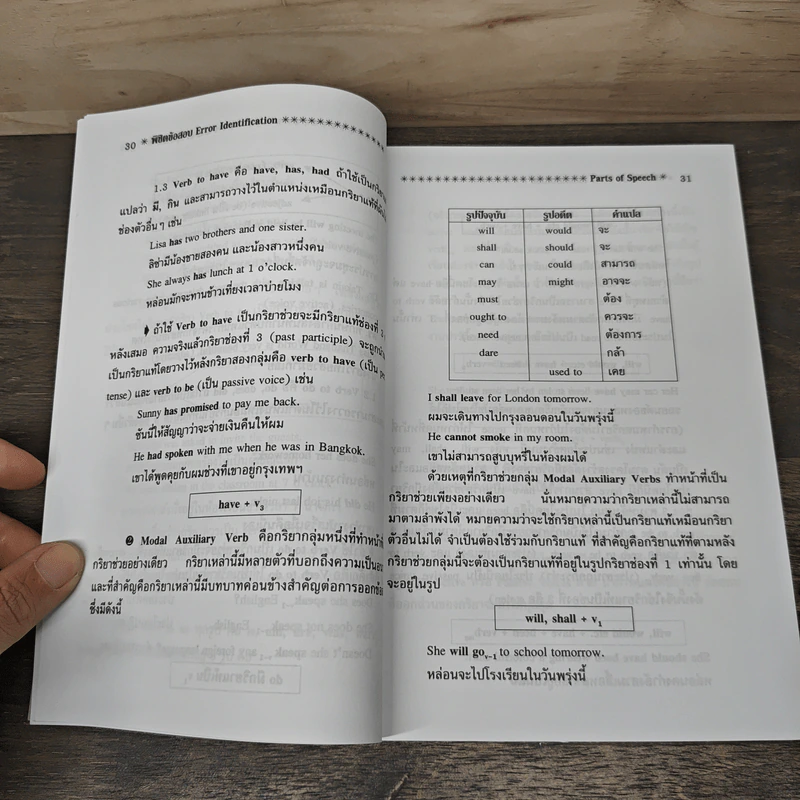 30 * พิชิตข้อสอบ Error Identification ********************
1.3 Verb to have คือ have, has, had ถ้าใช้เป็น
แปลว่า มี, กิน และสามารถวางไว้ในตำแหน่งเหมือนกริยาแท้
ช่องตัวอื่น ๆ เช่น
Lisa has two brothers and one sister.
ลิซ่ามีน้องชายสองคน และน้องสาวหนึ่งคน
She always has lunch at 1 o'clock.
หล่อนมักจะทานข้าวเที่ยงเวลาบ่ายโมง
ถ้าใช้ Verb to have เป็นกริยาช่วยจะมีกริยาแท้ช่องที่ 3
หลังเสมอ ความจริงแล้วกริยาช่องที่ 3 (past participle) จะถูก
เป็นกริยาแท้โดยวางไว้หลังกริยาสองกลุ่มคือ verb to have (เป็น
tense) และ verb to be (เป็น passive voice) เช่น
Sunny has promised to pay me back.
ซันนี่ให้สัญญาว่าจะจ่ายเงินคืนให้ผม
He had spoken with me when he was in Bangkok.
เขาได้พูดคุยกับผมช่วงที่เขาอยู่กรุงเทพฯ
have + v3
❷ Modal Auxiliary Verb คือกริยากลุ่มหนึ่งที่ทำหน้าที่
กริยาช่วยอย่างเดียว กริยาเหล่านี้มีหลายตัวที่บอกถึงความเป็น
และที่สำคัญคือกริยาเหล่านี้มีบทบาทค่อนข้างสำคัญต่อการออกข้อ
ซึ่งมีดังนี้
********************** Parts of Speech * 31
รูปปัจจุบัน รูปอดีต คำแปล
will would จะ
shall should จะ
can could สามารถ
may might อาจจะ
must ต้อง
ought to ควรจะ
need ต้องการ
dare กล้า
used to เคย
I shall leave for London tomorrow.
ผมจะเดินทางไปกรุงลอนดอนในวันพรุ่งนี้
He cannot smoke in my room.
เขาไม่สามารถสูบบุหรี่ในห้องผมได้
ด้วยเหตุที่กริยาช่วยกลุ่ม Modal Auxiliary Verbs ทำหน้าที่เป็น
กริยาช่วยเพียงอย่างเดียว นั่นหมายความว่ากริยาเหล่านี้ไม่สามารถ
มาตามลำพังได้ หมายความว่าจะใช้กริยาเหล่านี้เป็นกริยาแท้เหมือนกริยา
ตัวอื่นไม่ได้ จำเป็นต้องใช้ร่วมกับกริยาแท้ ที่สำคัญคือกริยาแท้ที่ตามหลัง
กริยาช่วยกลุ่มนี้จะต้องเป็นกริยาแท้ที่อยู่ในรูปกริยาช่องที่ 1 เท่านั้น โดย
จะอยู่ในรูป
will, shall + v1
She will go v-1 to school tomorrow.
หล่อนจะไปโรงเรียนในวันพรุ่งนี้